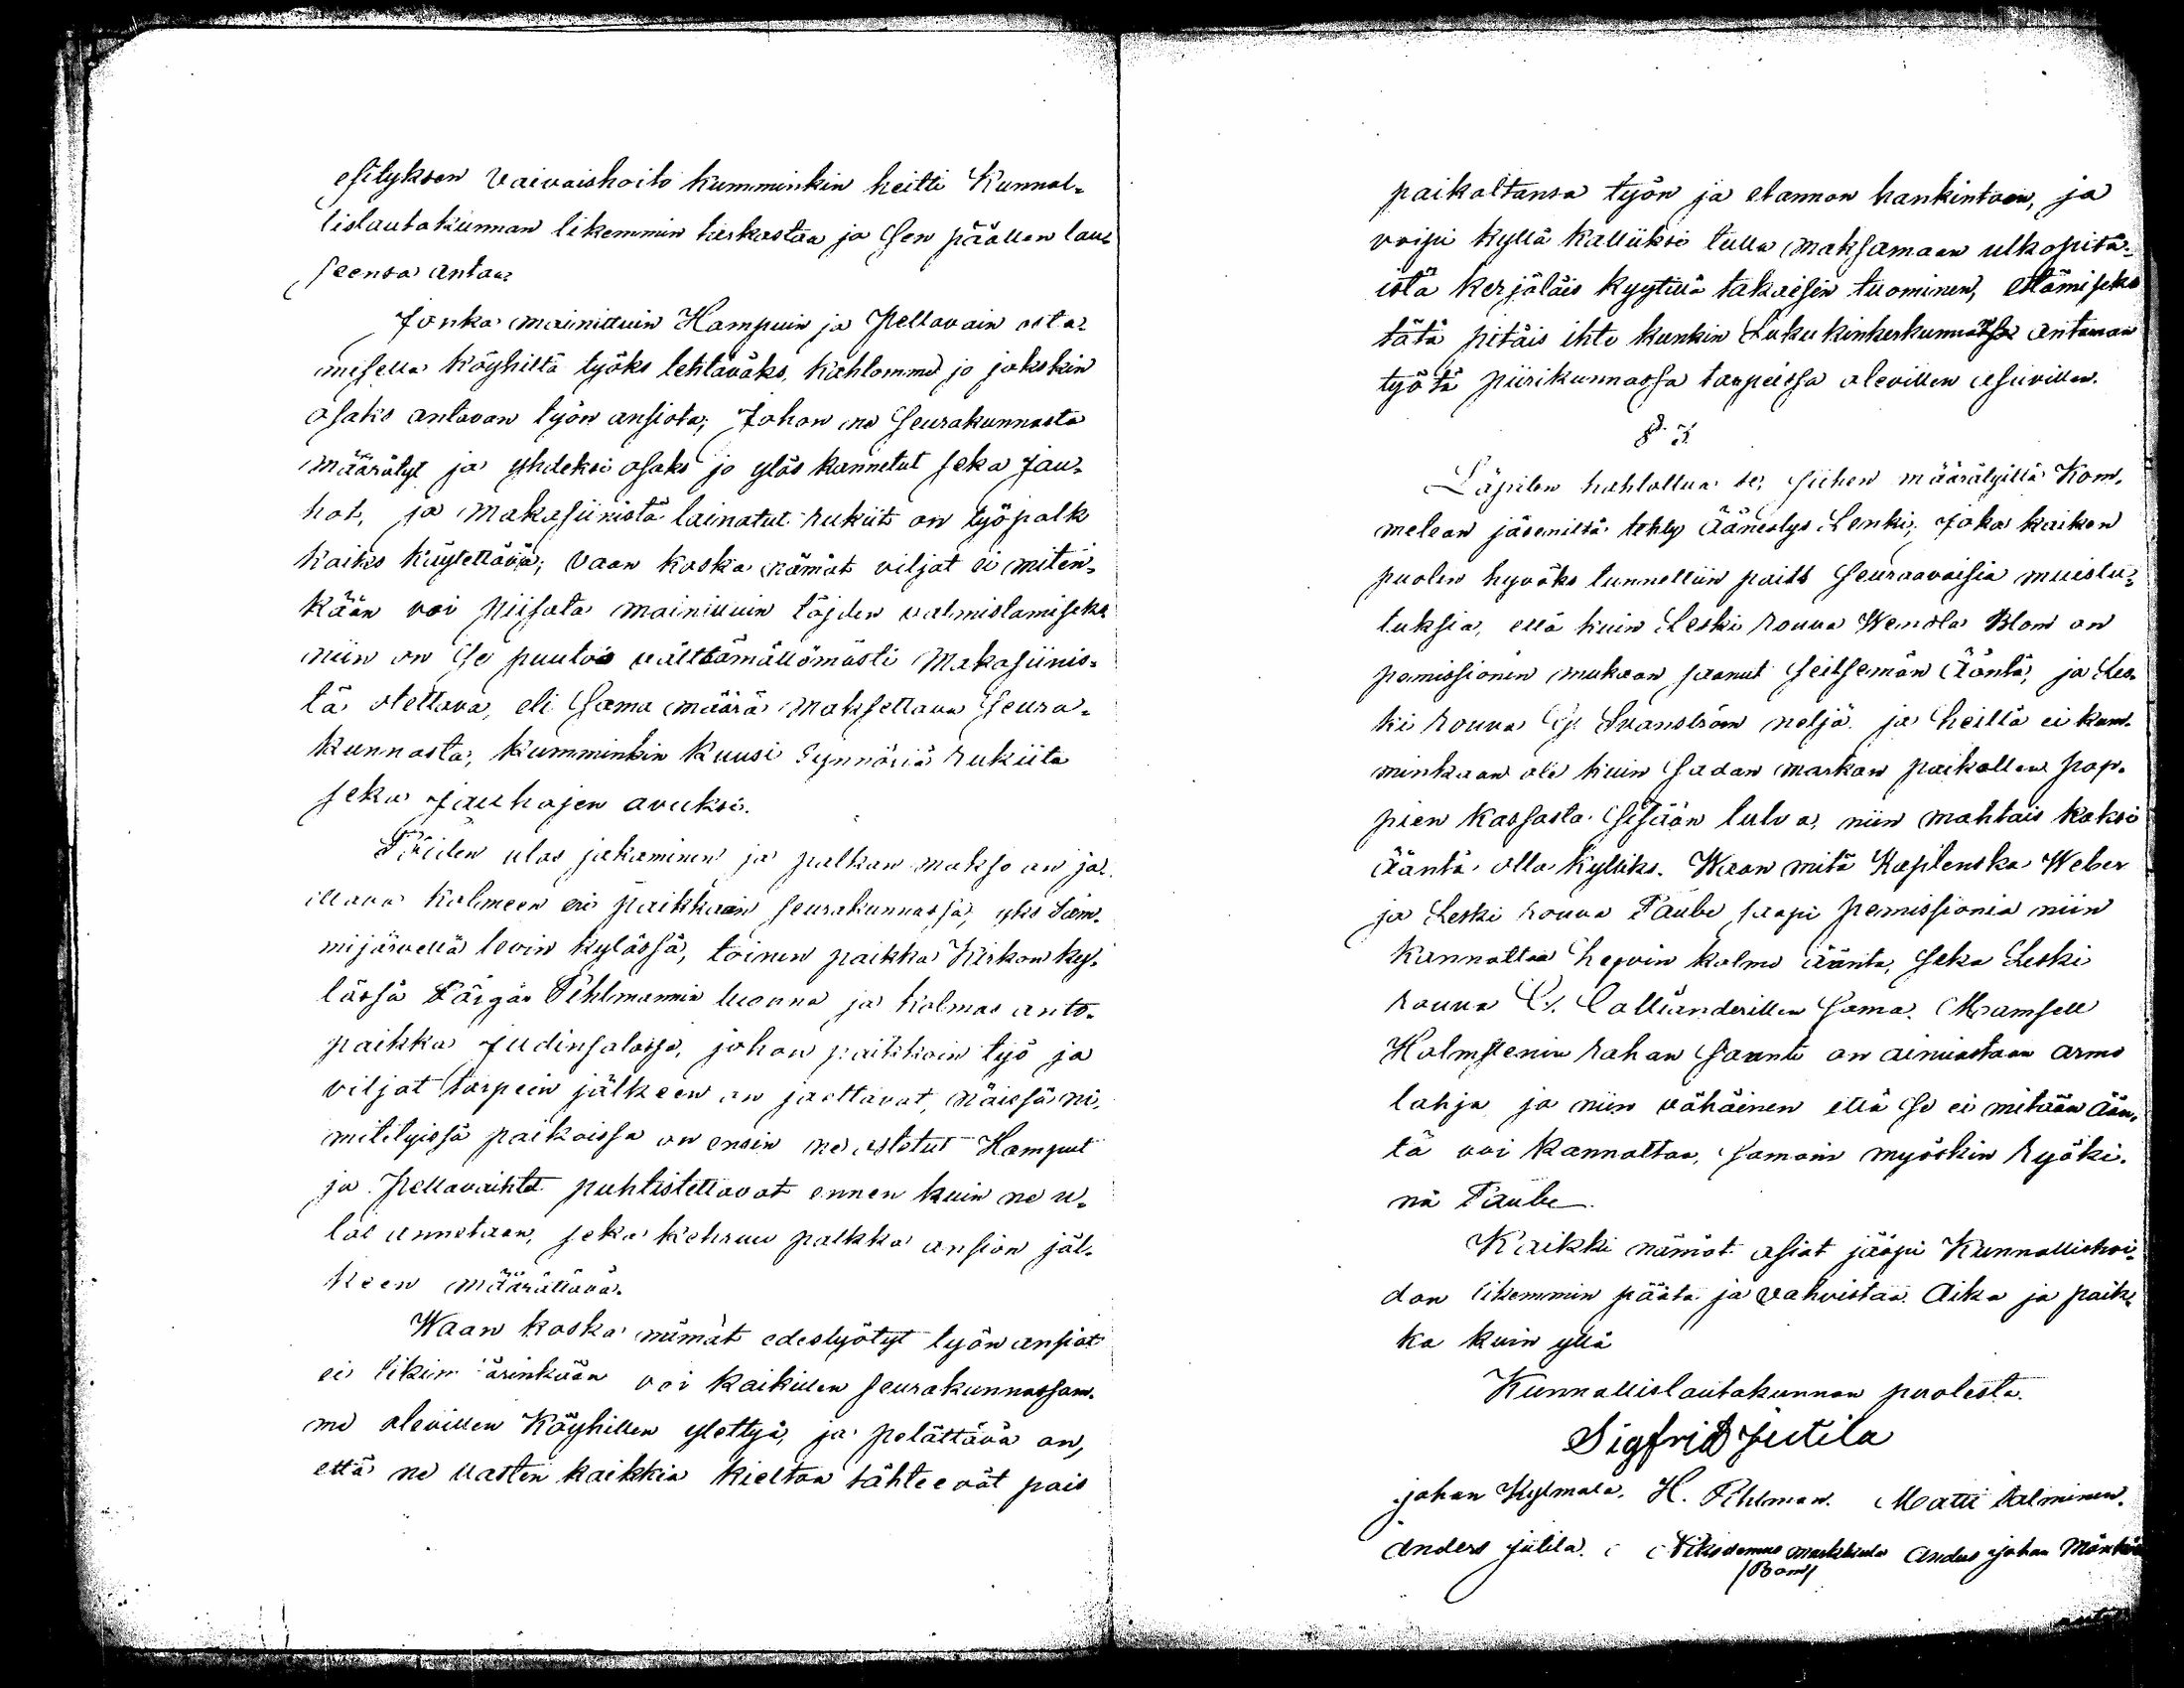 esityksen Vaivaishoito kumminkin heitti Kunnal-
lislautakunnan likemmin tarkastaa ja sen päällen lau-
seensa antaa.
Jonka mainittuin Hampuin ja Pellavain osta-
misella köyhiltä työks tehtäväks, kahlomme jo jokskin
osaks antavan työn ansiota; Johon ne Seurakunnasta
määrätyt ja yhdeksi osaks jo ylös kannetut seka Jau-
hot, ja Makasiinista lainatut rukiit on työpalk
kaiks käytettävä; vaan koska nämät viljat ei miten-
kään voi piisata mainituin töjden valmistamiseks
niin on se puutos välttämättömästi Makasiinis-
tä otettava, eli sama määrä maksettava Seura-
kunnasta, kumminkin kuusi Tynnöriä rukiita
seka jauhojen avuksi.
Töiden ulos jakaminen ja palkan makso on ja-
ettava kolmeen eri paikkaan seurakunnassa, yks Säm-
mijärvellä levin kylässä, toinen paikka Kirkon ky-
lässä Pihlmannin luonna ja kolmas anto-
paikka Judinsalossa, johon paikkoin työ ja
viljat tarpein jälkeen on jaettavat, näissä ni-
mitetyissä paikoissa on ensin ne ostetut Hamput
ja Pellavaihtet puhtistettavat ennen kuin ne u-
los annetaan, seka kehruu palkka ansion jäl-
keen määrättävä.
Waan koska nämät edeslyötyt työn ansiot
ei likim ärinkään voi kaikillen seurakunnassam-
me olevillen köyhillen ylettyä, ja pelättävä on,
että ne vasten kaikkia kieltoa lähteevät pois
paikaltansa työn ja elannon hankintoon, ja
voipi kyllä kalliiksi tulla maksamaan ulkopitä-
istä kerjäläis kyytillä takaisin tuominen, estämiseks
tätä pitäis ihte kunkin Lukukinkerkunnassa antaman
työtä piirikunnassa tarpeissa olevillen asuvillen.
§ 3
Läpiten kahtottua se, siihen määrätyillä Kom-
metean jäseniltä tehty Äänestys Lenki, joka kaiken
puolen hyväks tunnettiin paitsi seuraavaisia muistu-
tuksia, että kuin Leski rouva Wendla Blom on
pemissionin mukaan saanut seitsemän Ääntä, ja Les-
ki rouva G. Svanström neljä ja heillä ei kum-
minkaan ole kuin sadan markan paikollen pap-
pien kassasta sisään tulva, niin mahtais kaksi
Ääntä olla kylliks. Waan mitä Kaptenska Weber
ja Leski rouva Taube saapi pemissionia niin
kannattaa hepoin kolme ääntä, seka Leski
rouva C. Calliänderillen sama. Mamsell
Holmstenin rahan saanti on ainiastaan armo
lahja ja niin vähäinen että se ei mitään Ään-
tä voi kannattaa, samoin myöskin Ryöki-
nä Taube
Kaikki nämät asiat jääpi Kunnallishoi-
don likemmin päätä ja vahvistaa. Aika ja paik-
ka kuin yllä
Kunnallislautakunnan puolesta.
Sigfrid Jutila
Johan Kylmala. H. Pihlman. Matti Salminen.
Anders Jutila. Nikodemus Markkula Anders Johan
/Bom/